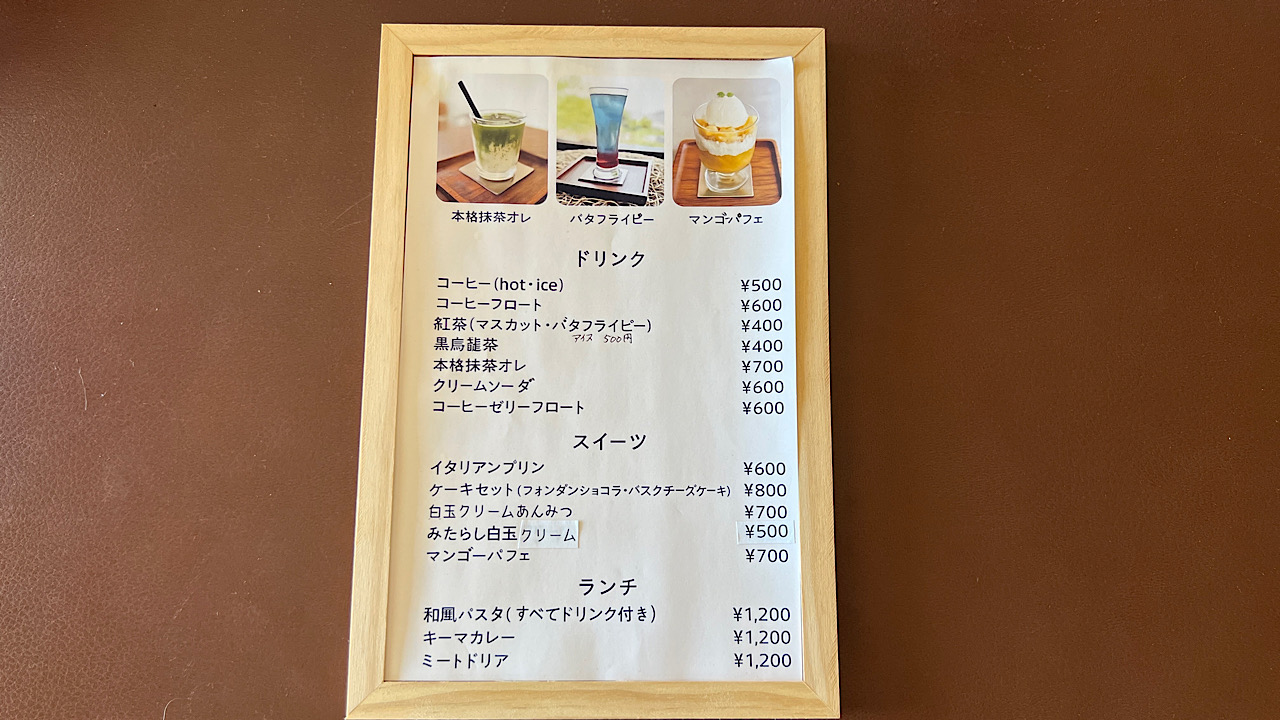 本格抹茶オレ バタフライピー マンゴーパフェ
ドリンク
コーヒー(hot・ice) ¥500
コーヒーフロート ¥600
紅茶(マスカット・バタフライピー) ¥400
アイス 500円
黒烏龍茶 ¥400
本格抹茶オレ ¥700
クリームソーダ ¥600
コーヒーゼリーフロート ¥600
スイーツ
イタリアンプリン ¥600
ケーキセット(フォンダンショコラ・バスクチーズケーキ) ¥800
白玉クリームあんみつ ¥700
みたらし白玉クリーム ¥500
マンゴーパフェ ¥700
ランチ
和風パスタ(すべてドリンク付き) ¥1,200
キーマカレー ¥1,200
ミートドリア ¥1,200